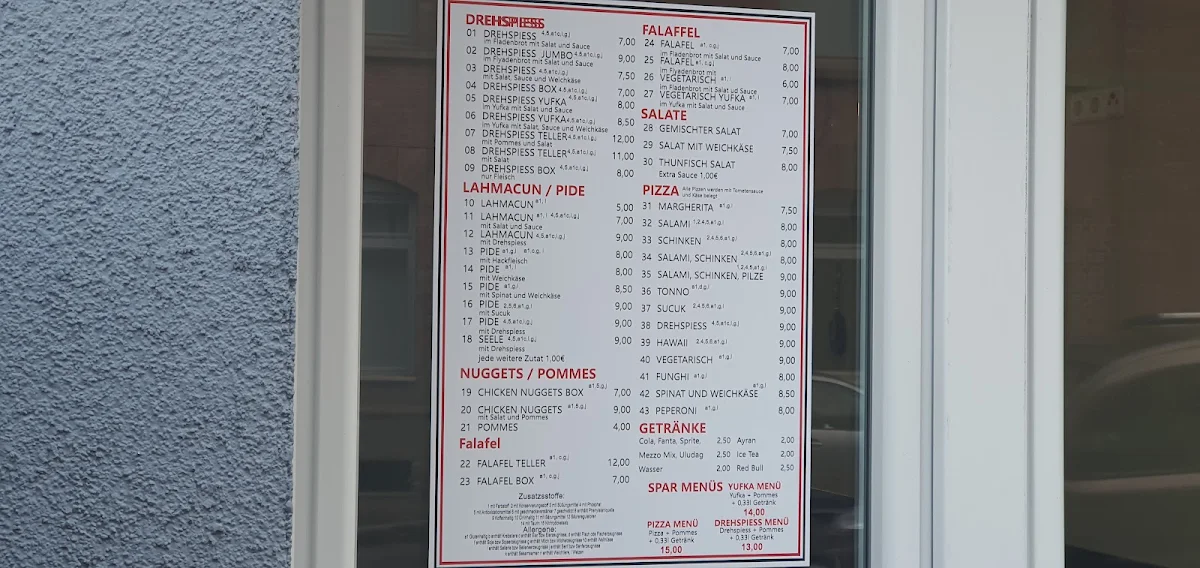 DREHSPIESS
01 DREHSPIESS 4,5,a1c,i,g,j 7,00
im Fladenbrot mit Salat und Sauce
02 DREHSPIESS JUMBO 4,5,a1c,i,g,j 9,00
im Flyadenbrot mit Salat und Sauce
03 DREHSPIESS 4,5,a1c,i,g,j 7,50
mit Salat, Sauce und Weichkäse
04 DREHSPIESS BOX 4,5,a1c,i,g,j 7,00
05 DREHSPIESS YUFKA 4,5,a1c,i,g,j 8,00
im Yufka mit Salat und Sauce
06 DREHSPIESS YUFKA 4,5,a1c,i,g,j 8,50
im Yufka mit Salat, Sauce und Weichkäse
07 DREHSPIESS TELLER 4,5,a1c,i,g,j 12,00
mit Pommes und Salat
08 DREHSPIESS TELLER 4,5,a1c,i,g,j 11,00
mit Salat
09 DREHSPIESS BOX 4,5,a1c,i,g,j 8,00
nur Fleisch
LAHMACUN / PIDE
10 LAHMACUN a1, i 5,00
11 LAHMACUN a1, i 4,5,a1c,i,g,j 7,00
mit Salat und Sauce
12 LAHMACUN 4,5,a1c,i,g,j 9,00
mit Drehspiess
13 PIDE a1,g,i a1,c,g, i 8,00
mit Hackfleisch
14 PIDE a1, i 8,00
mit Weichkäse
15 PIDE a1,g,i 8,50
mit Spinat und Weichkäse
16 PIDE 2,5,6,a1,g,i 9,00
mit Sucuk
17 PIDE 4,5,a1c,i,g,j 9,00
mit Drehspiess
18 SEELE 4,5,a1c,i,g,j 9,00
mit Drehspiess
jede weitere Zutat 1,00€
NUGGETS / POMMES
19 CHICKEN NUGGETS BOX a1,5,g,j 7,00
20 CHICKEN NUGGETS a1,5,g,j 9,00
mit Salat und Pommes
21 POMMES 4,00
Falafel
22 FALAFEL TELLER a1, c,g,j 12,00
23 FALAFEL BOX a1, c,g,j 7,00
Zusatzsstoffe:
Allergene:
FALAFFEL
24 FALAFEL a1, c,g,j 7,00
im Fladenbrot mit Salat und Sauce
25 FALAFEL a1, c,g,j 8,00
im Flyadenbrot mit
26 VEGETARISCH a1, i 6,00
im Fladenbrot mit Salat ud Sauce
27 VEGETARISCH YUFKA a1, i 7,00
im Yufka mit Salat und Sauce
SALATE
28 GEMISCHTER SALAT 7,00
29 SALAT MIT WEICHKÄSE 7,50
30 THUNFISCH SALAT 8,00
Extra Sauce 1,00€
PIZZA Alle Pizzen werden mit Tomatensauce
und Käse belegt
31 MARGHERITA a1,g,i 7,50
32 SALAMI 1,2,4,5,a1,g,i 8,00
33 SCHINKEN 2,4,5,6,a1,g,i 8,00
34 SALAMI, SCHINKEN 2,4,5,6,a1,g,i 8,00
35 SALAMI, SCHINKEN, PILZE 1,2,4,5,a1,g,i 9,00
36 TONNO a1,d,g,i 9,00
37 SUCUK 2,4,5,6,a1,g,i 9,00
38 DREHSPIESS 4,5,a1c,i,g,j 9,00
39 HAWAII 2,4,5,6,a1,g,i 9,00
40 VEGETARISCH a1,g,i 9,00
41 FUNGHI a1,g,i 8,00
42 SPINAT UND WEICHKÄSE a1,g,i 8,50
43 PEPERONI a1,g,i 8,00
GETRÄNKE
Cola, Fanta, Sprite, 2,50 Ayran 2,00
Mezzo Mix, Uludag 2,50 Ice Tea 2,00
Wasser 2,00 Red Bull 2,50
SPAR MENÜS
YUFKA MENÜ
Yufka + Pommes
+ 0,33l Getränk
14,00
PIZZA MENÜ
Pizza + Pommes
+ 0,33l Getränk
15,00
DREHSPIESS MENÜ
Drehspiess + Pommes
+ 0,33l Getränk
13,00